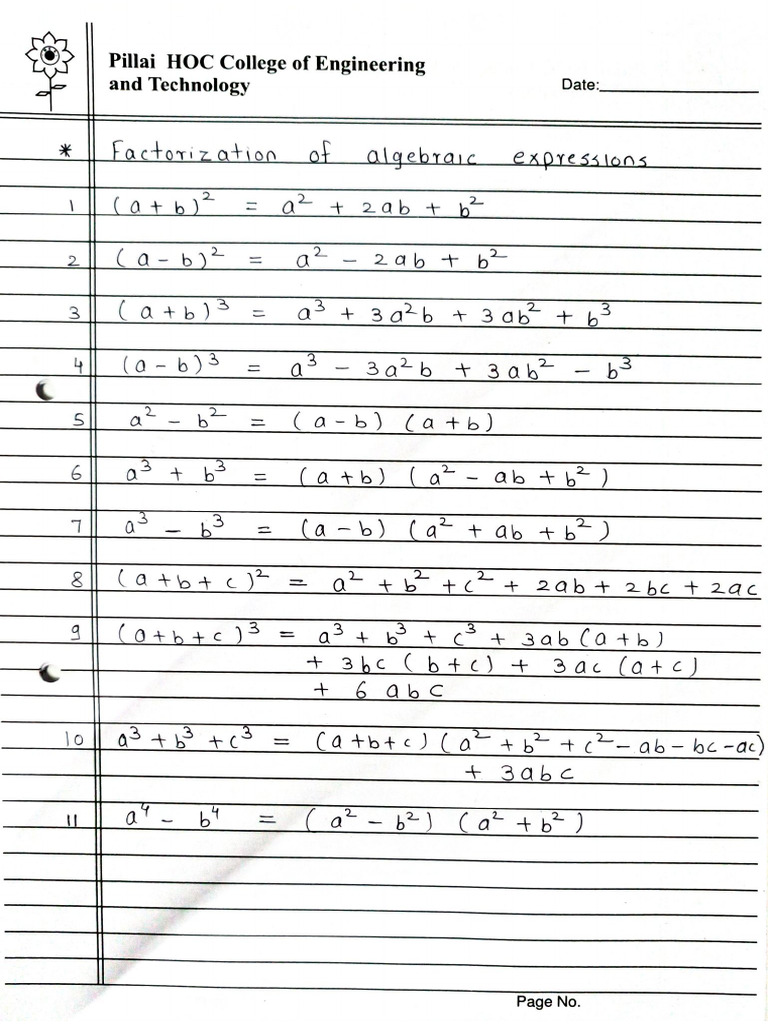 Pillai HOC College of Engineering
and Technology
Date:
* Factorization of algebraic expressions
1 (a + b)² = a² + 2ab + b²
2 (a - b)² = a² - 2ab + b²
3 (a + b)³ = a³ + 3a²b + 3ab² + b³
4 (a - b)³ = a³ - 3a²b + 3ab² - b³
5 a² - b² = (a - b) (a + b)
6 a³ + b³ = (a + b) (a² - ab + b²)
7 a³ - b³ = (a - b) (a² + ab + b²)
8 (a + b + c)² = a² + b² + c² + 2ab + 2bc + 2ac
9 (a + b + c)³ = a³ + b³ + c³ + 3ab (a + b)
+ 3bc (b + c) + 3ac (a + c)
+ 6 abc
10 a³ + b³ + c³ = (a + b + c) (a² + b² + c² - ab - bc - ac)
+ 3abc
11 a⁴ - b⁴ = (a² - b²) (a² + b²)
Page No.